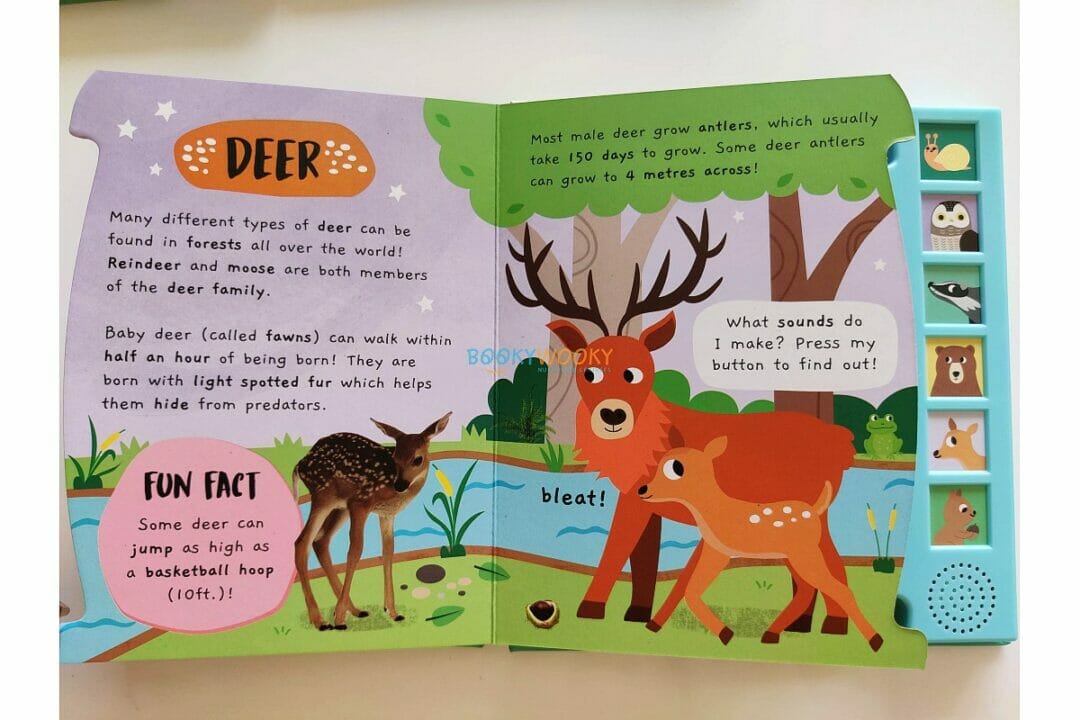 DEER
Many different types of deer can be
found in forests all over the world!
Reindeer and moose are both members
of the deer family.
Baby deer (called fawns) can walk within
half an hour of being born! They are
born with light spotted fur which helps
them hide from predators.
FUN FACT
Some deer can
jump as high as
a basketball hoop
(10ft.)!
Most male deer grow antlers, which usually
take 150 days to grow. Some deer antlers
can grow to 4 metres across!
What sounds do
I make? Press my
button to find out!
bleat!
BOOKYWOOKY